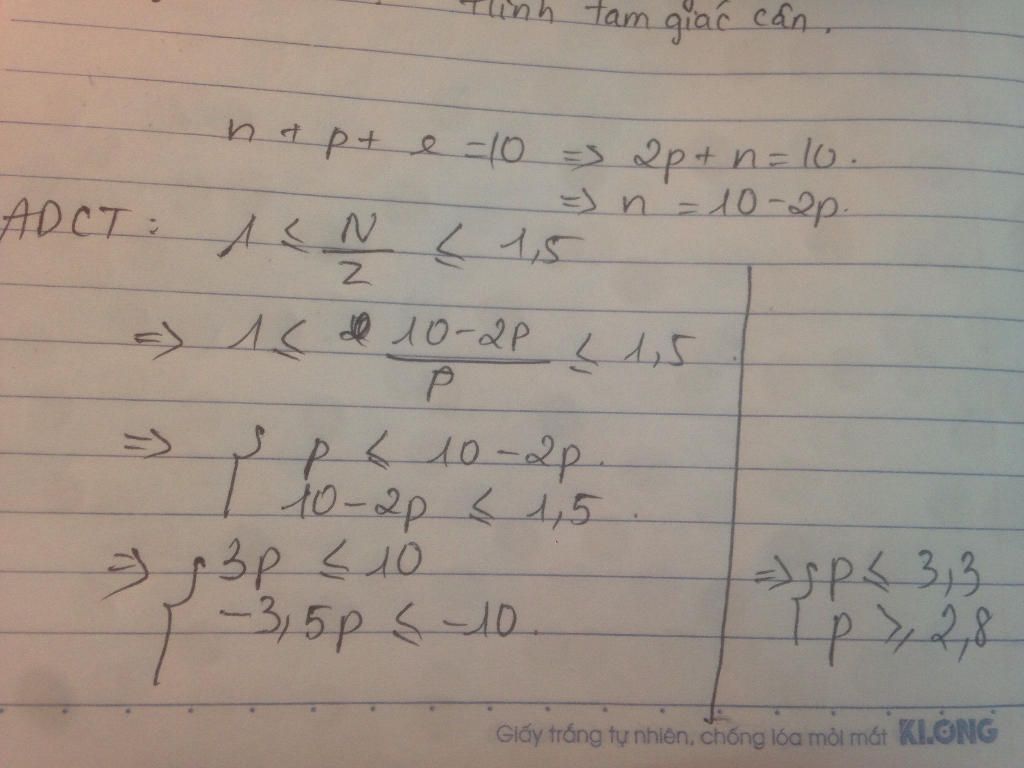 Hình tam giác cân.
n + p + e = 10 => 2p + n = 10.
=> n = 10 - 2p.
ADCT: 1 ≤ N/Z ≤ 1,5
=> 1 ≤ (10 - 2p)/p ≤ 1,5
=> { p ≤ 10 - 2p.
10 - 2p ≤ 1,5.
=> { 3p ≤ 10
-3,5p ≤ -10.
=> { p ≤ 3,3
p ≥ 2,8
Giấy trắng tự nhiên, chống lóa mỏi mắt KLONG